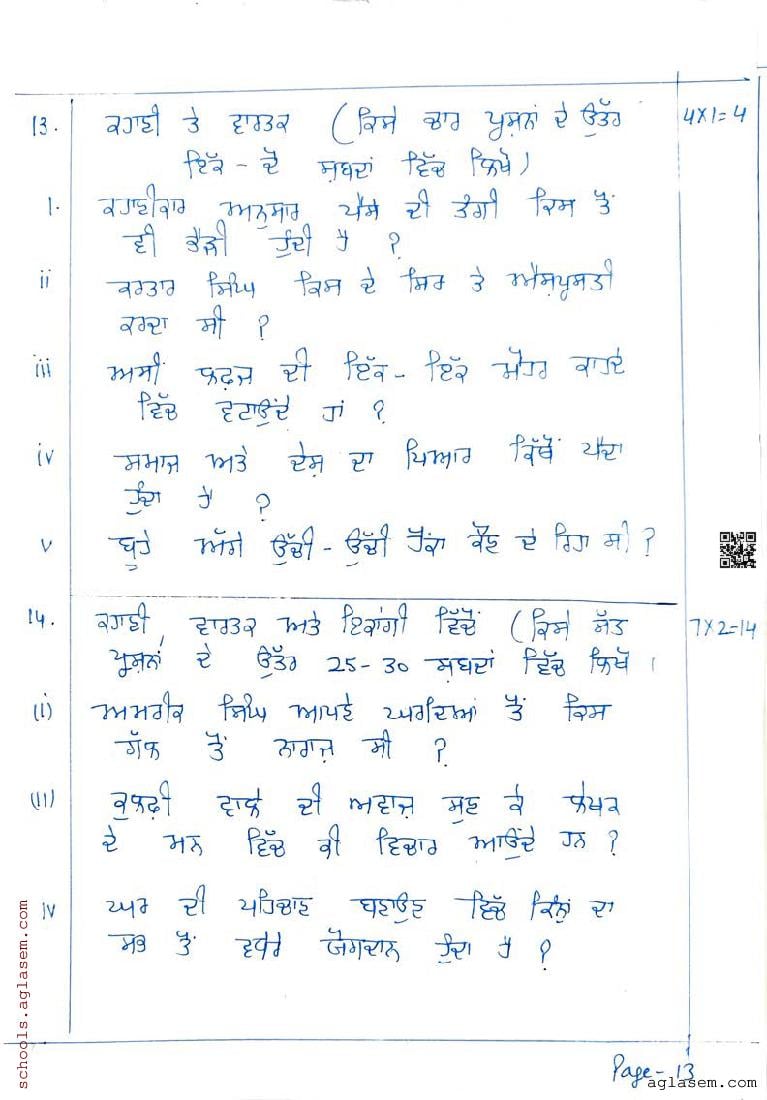 13. ਕਹਾਣੀ ਤੇ ਵਾਰਤਕ (ਕਿਸੇ ਚਾਰ ਪ੍ਰਸ਼ਨਾਂ ਦੇ ਉੱਤਰ 4X1=4
ਇੱਕ - ਦੋ ਸ਼ਬਦਾਂ ਵਿੱਚ ਲਿਖੋ)
1. ਕਹਾਣੀਕਾਰ ਅਨੁਸਾਰ ਪੈਸੇ ਦੀ ਤੰਗੀ ਕਿਸ ਤੋਂ
ਵੀ ਭੈੜੀ ਹੁੰਦੀ ਹੈ ?
ii ਕਰਤਾਰ ਸਿੰਘ ਕਿਸ ਦੇ ਸਿਰ ਤੇ ਐਸ਼ਪ੍ਰਸਤੀ
ਕਰਦਾ ਸੀ ?
iii ਅਸੀਂ ਲਫ਼ਜ਼ ਦੀ ਇੱਕ - ਇੱਕ ਮੋਹਰ ਕਾਹਦੇ
ਵਿੱਚ ਵਟਾਉਂਦੇ ਹਾਂ ?
iv ਸਮਾਜ ਅਤੇ ਦੇਸ਼ ਦਾ ਪਿਆਰ ਕਿੱਥੋਂ ਪੈਦਾ
ਹੁੰਦਾ ਹੈ ?
v ਬੂਹੇ ਅੱਗੇ ਉੱਚੀ - ਉੱਚੀ ਹੋਕਾ ਕੌਣ ਦੇ ਰਿਹਾ ਸੀ ?
14. ਕਹਾਣੀ, ਵਾਰਤਕ ਅਤੇ ਇਕਾਂਗੀ ਵਿੱਚੋਂ (ਕਿਸੇ ਸੱਤ 7X2=14
ਪ੍ਰਸ਼ਨਾਂ ਦੇ ਉੱਤਰ 25-30 ਸ਼ਬਦਾਂ ਵਿੱਚ ਲਿਖੋ ।
(i) ਅਮਰੀਕ ਸਿੰਘ ਆਪਣੇ ਘਰਦਿਆਂ ਤੋਂ ਕਿਸ
ਗੱਲ ਤੋਂ ਨਾਰਾਜ਼ ਸੀ ?
(iii) ਕੁਲਫ਼ੀ ਵਾਲੇ ਦੀ ਅਵਾਜ਼ ਸੁਣ ਕੇ ਲੇਖਕ
ਦੇ ਮਨ ਵਿੱਚ ਕੀ ਵਿਚਾਰ ਆਉਂਦੇ ਹਨ ?
iv ਘਰ ਦੀ ਪਹਿਚਾਣ ਬਣਾਉਣ ਵਿੱਚ ਕਿੰਨ੍ਹਾਂ ਦਾ
ਸਭ ਤੋਂ ਵਧੇਰੇ ਯੋਗਦਾਨ ਹੁੰਦਾ ਹੈ ?
Page-13
aglasem.com
schools.aglasem.com